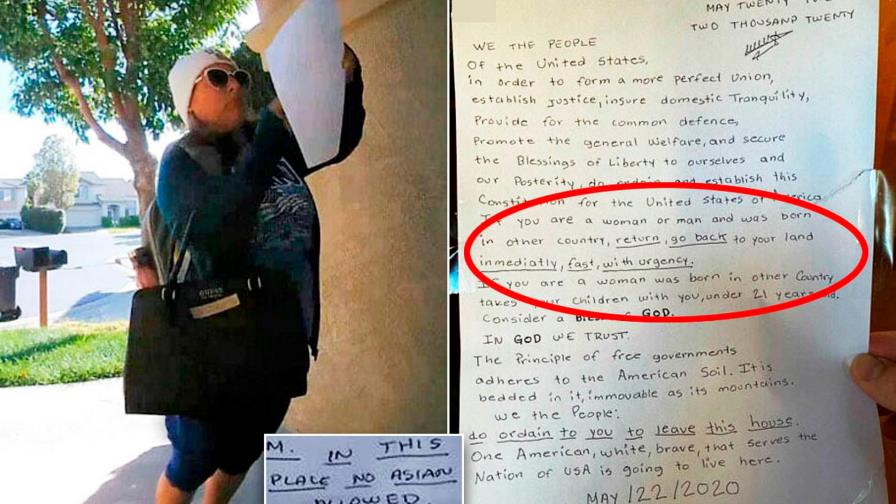 M. IN THIS
PLACE NO ASIAN
ALLOWED.
MAY TWENTY
TWO THOUSAND TWENTY
WE THE PEOPLE
Of the United States,
in order to form a more perfect Union,
establish Justice, insure domestic Tranquility,
Provide for the common defence,
Promote the general Welfare, and secure
the Blessings of Liberty to ourselves and
our Posterity, do ordain and establish this
Constitution for the United States of America
If you are a woman or man and was born
in other country, return, go back to your land
inmediatly, fast, with urgency.
If you are a woman was born in other Country
takes your children with you, under 21 years old.
Consider a GOD.
IN GOD WE TRUST.
The Principle of free governments
adheres to the American Soil. It is
bedded in it, immovable as its mountains.
we the People:
do ordain to you to leave this house.
One American, white, brave, that serves the
Nation of USA is going to live here.
MAY /22/2020